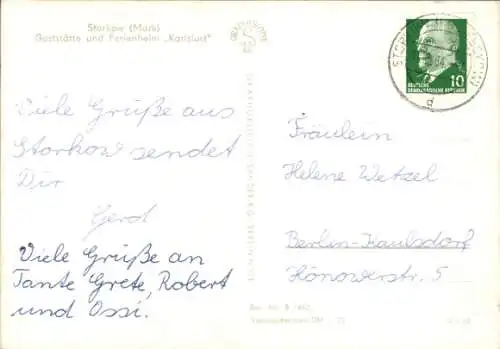 Storkow (Mark)
Gaststätte und Ferienheim „Karlslust"
Viele Grüße aus
Storkow sendet
Dir
Gerd
Viele Grüße an
Tante Grete, Robert
und Ossi.
10
DEUTSCHE
DEMOKRATISCHE REPUBLIK
Fräulein
Helene Wetzel
Berlin-Kaulsdorf
Hönowerstr. 5